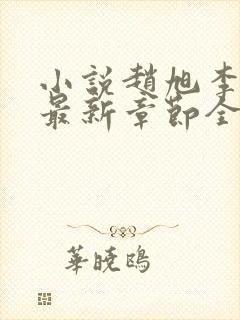 小說趙旭李
最新章節全
華曉鷗